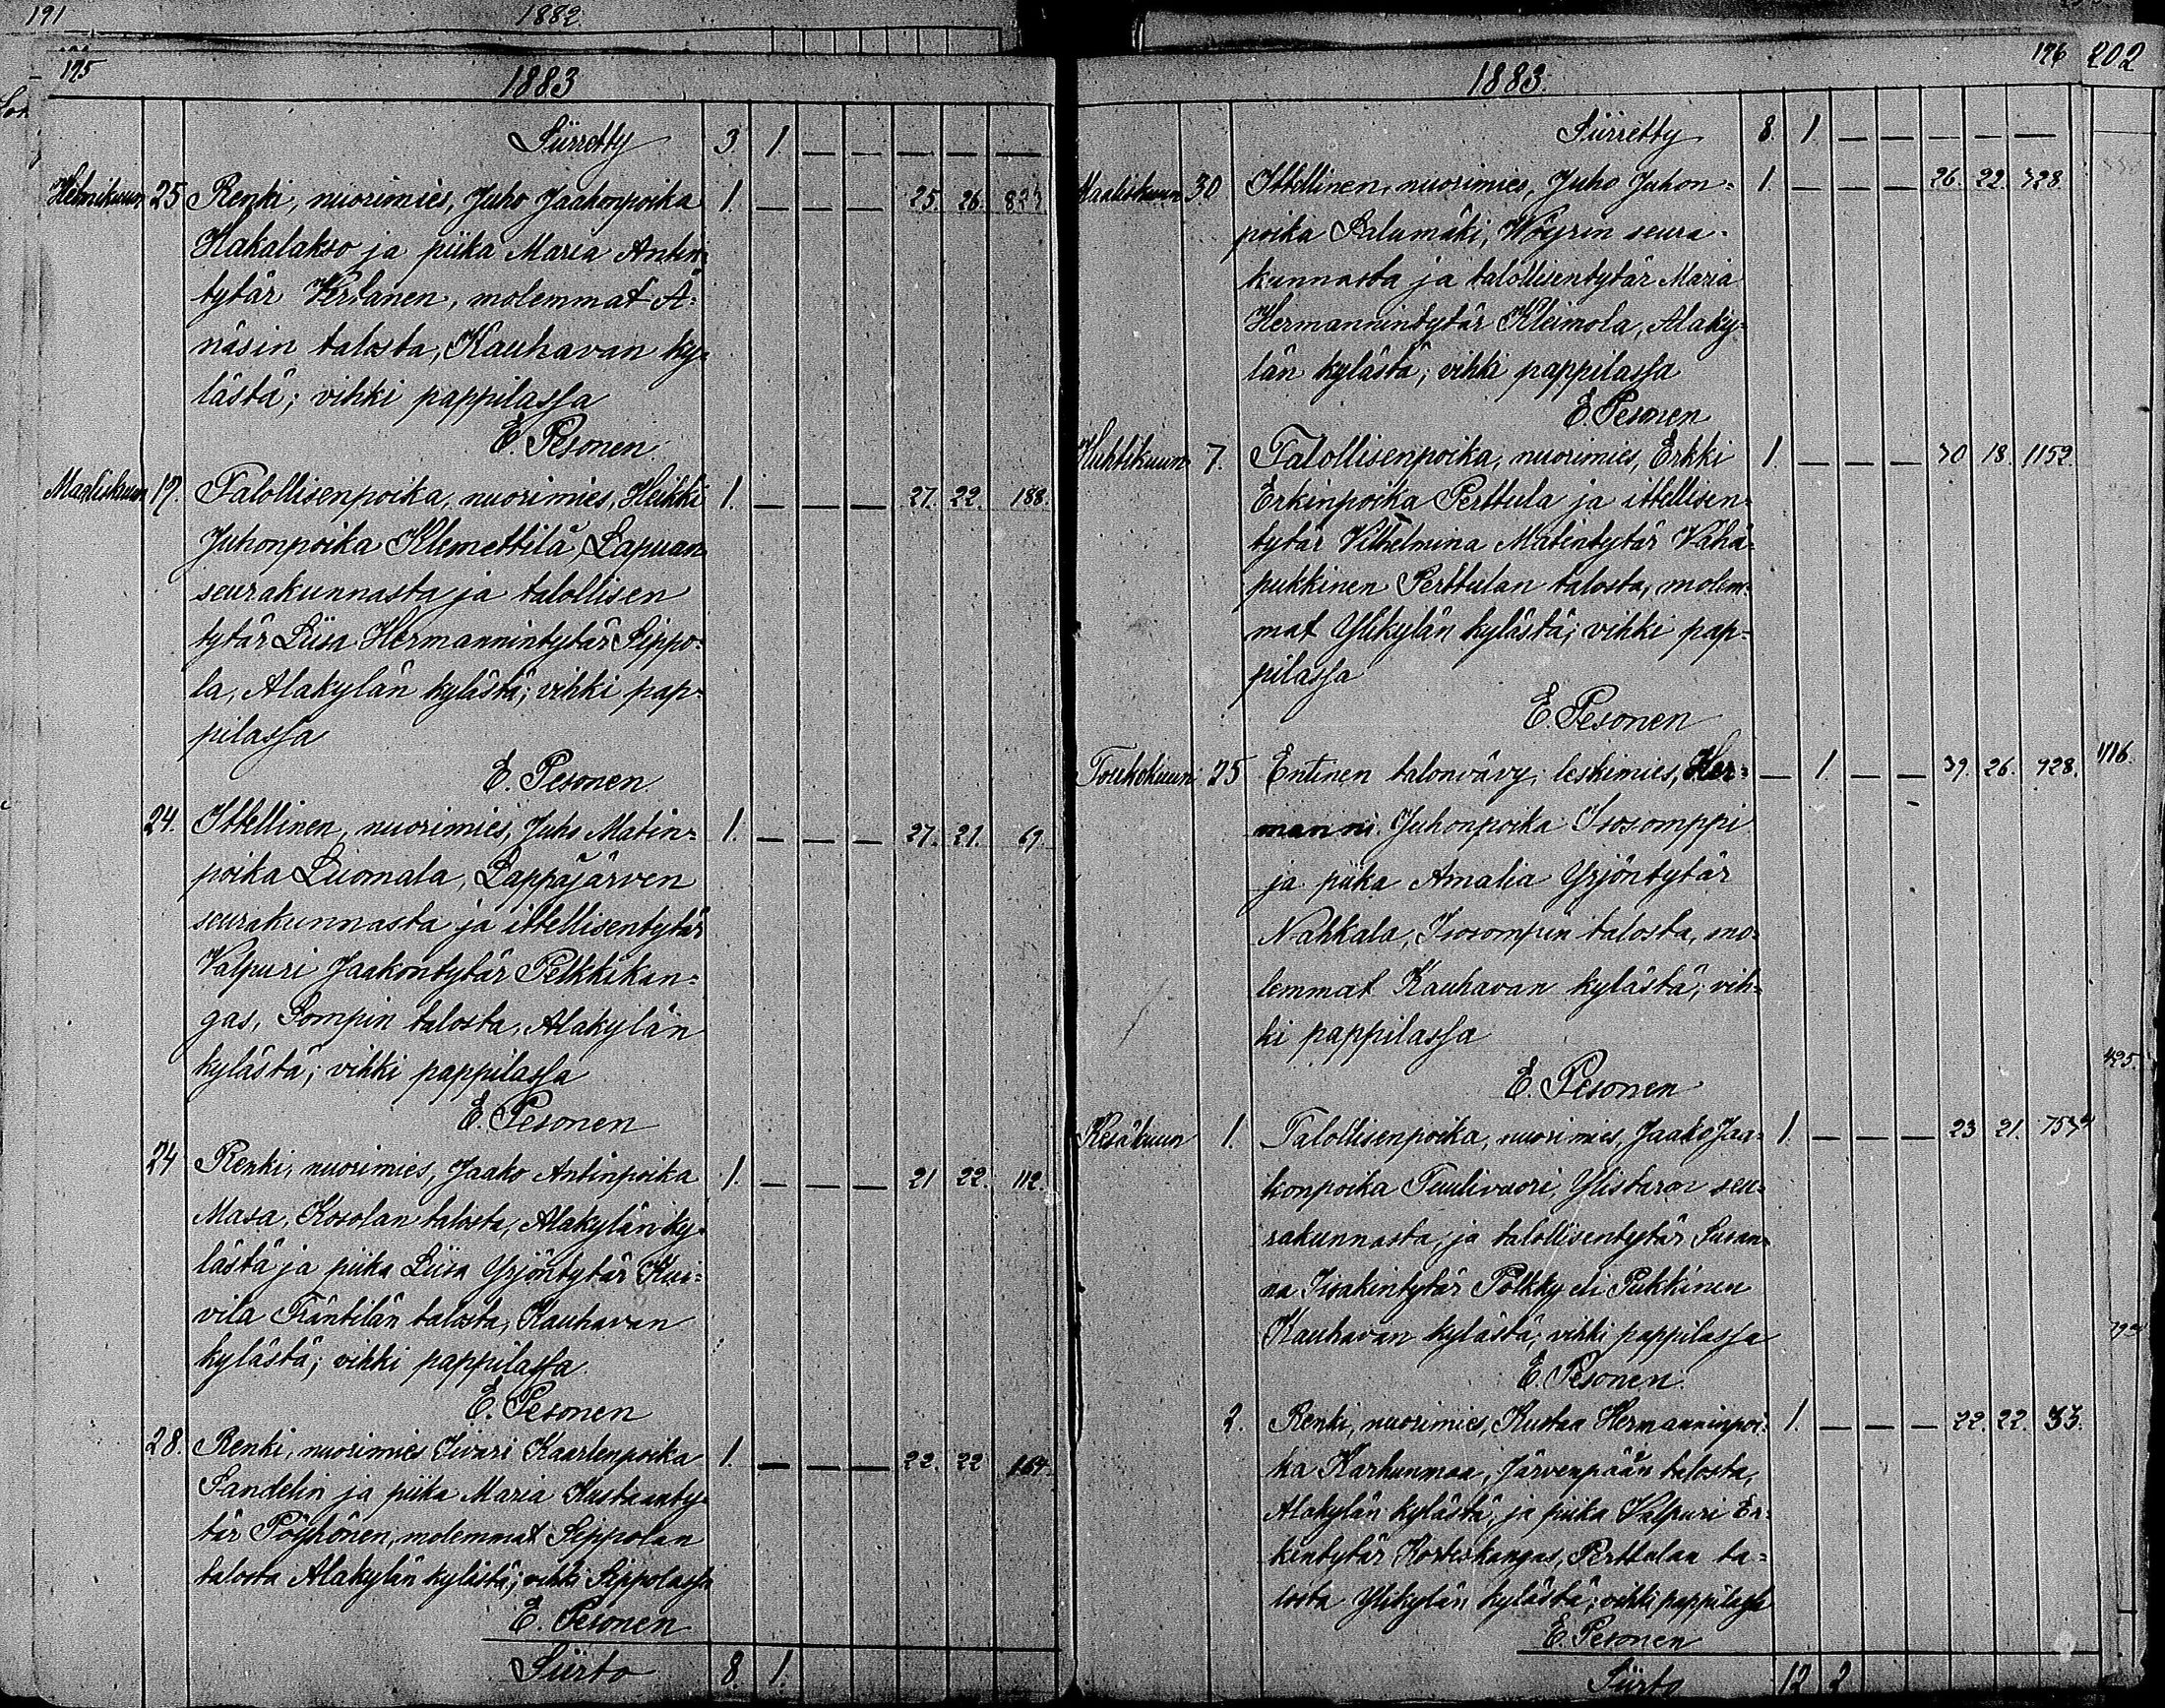 191 1882.
175
1883
Siirretty 3 1. — — — — —
Helmikuun 25 Renki, nuorimies, Juho Jaakonpoika 1. — — — 25. 26.
Hakalakso ja piika Maria Antin-
tytär Vertanen, molemmat Ä-
näsin talosta, Kauhavan ky-
lästä; vihki pappilassa
E. Pesonen
Maaliskuun 17. Talollisenpoika, nuorimies, Heikki 1. — — — 27. 22. 188.
Juhonpoika Klemettilä, Lapuan
seurakunnasta ja talollisen
tytär Liisa Hermannintytär Sippo-
la, Alakylän kylästä; vihki pap-
pilassa
E. Pesonen
24. Ittellinen, nuorimies, Juho Matin- 1. — — — 27. 21. 69.
poika Luomala, Lappajärven
seurakunnasta ja ittellisentytär
Valpuri Jaakontytär Pelkkikan-
gas, Pompin talosta, Alakylän
kylästä; vihki pappilassa
E. Pesonen
24 Renki, nuorimies, Jaako Antinpoika 1. — — — 21 22. 112.
Masa, Kosolan talosta, Alakylän ky-
lästä ja piika Liisa Yrjöntytär Kui-
vila Fräntilän talosta, Kauhavan
kylästä; vihki pappilassa.
E. Pesonen
28. Renki, nuorimies Iivari Kaarlenpoika 1. — — — 22. 22 164.
Sandelin ja piika Maria Kustaanty-
tär Pöyhönen, molemmat Sippolan
talosta Alakylän kylästä; vihki Sippolassa
E. Pesonen
Siirto 8. 1.
176 202
1883.
Siirretty 8. 1. — — — — —
Maaliskuun 30 Ittellinen, nuorimies, Juho Juhon- 1. — — — 26. 22. 328.
poika Salumäki, Wöyrin seura-
kunnasta ja talollisentytär Maria
Hermannintytär Kleimola, Alaky-
län kylästä; vihki pappilassa
E. Pesonen
Huhtikuun 7. Talollisenpoika, nuorimies, Erkki 1. — — — 30 18. 1152.
Erkinpoika Perttula ja ittellisen-
tytär Vilhelmina Matintytär Vähä-
pukkinen Perttulan talosta, molem-
mat Ylikylän kylästä; vihki pap-
pilassa
E. Pesonen
Toukokuun 25 Entinen talonvävy, leskimies, Her- — 1. — — 39. 26. 928. 1116.
manni Juhonpoika Isosomppi
ja piika Amalia Yrjöntytär
Nahkala, Isosompin talosta, mo-
lemmat Kauhavan kylästä; vih-
ki pappilassa
E. Pesonen
425.
Kesäkuun 1. Talollisenpoika, nuorimies, Jaako Jaa- 1. — — — 23 21.
konpoika Tuulivuori, Ylistaron seu-
rakunnasta, ja talollisentytär Susan-
na Iisakintytär Pölkky eli Pukkinen
Kauhavan kylästä; vihki pappilassa
E. Pesonen.
2. Renki, nuorimies, Kustaa Hermanninpoi- 1. — — — 22. 22. 33.
ka Karhunmaa, Järvenpään talosta,
Alakylän kylästä, ja piika Valpuri Er-
kintytär Korteskangas, Perttulan ta-
losta Ylikylän kylästä; vihki pappilassa
E. Pesonen
Siirto 12 2